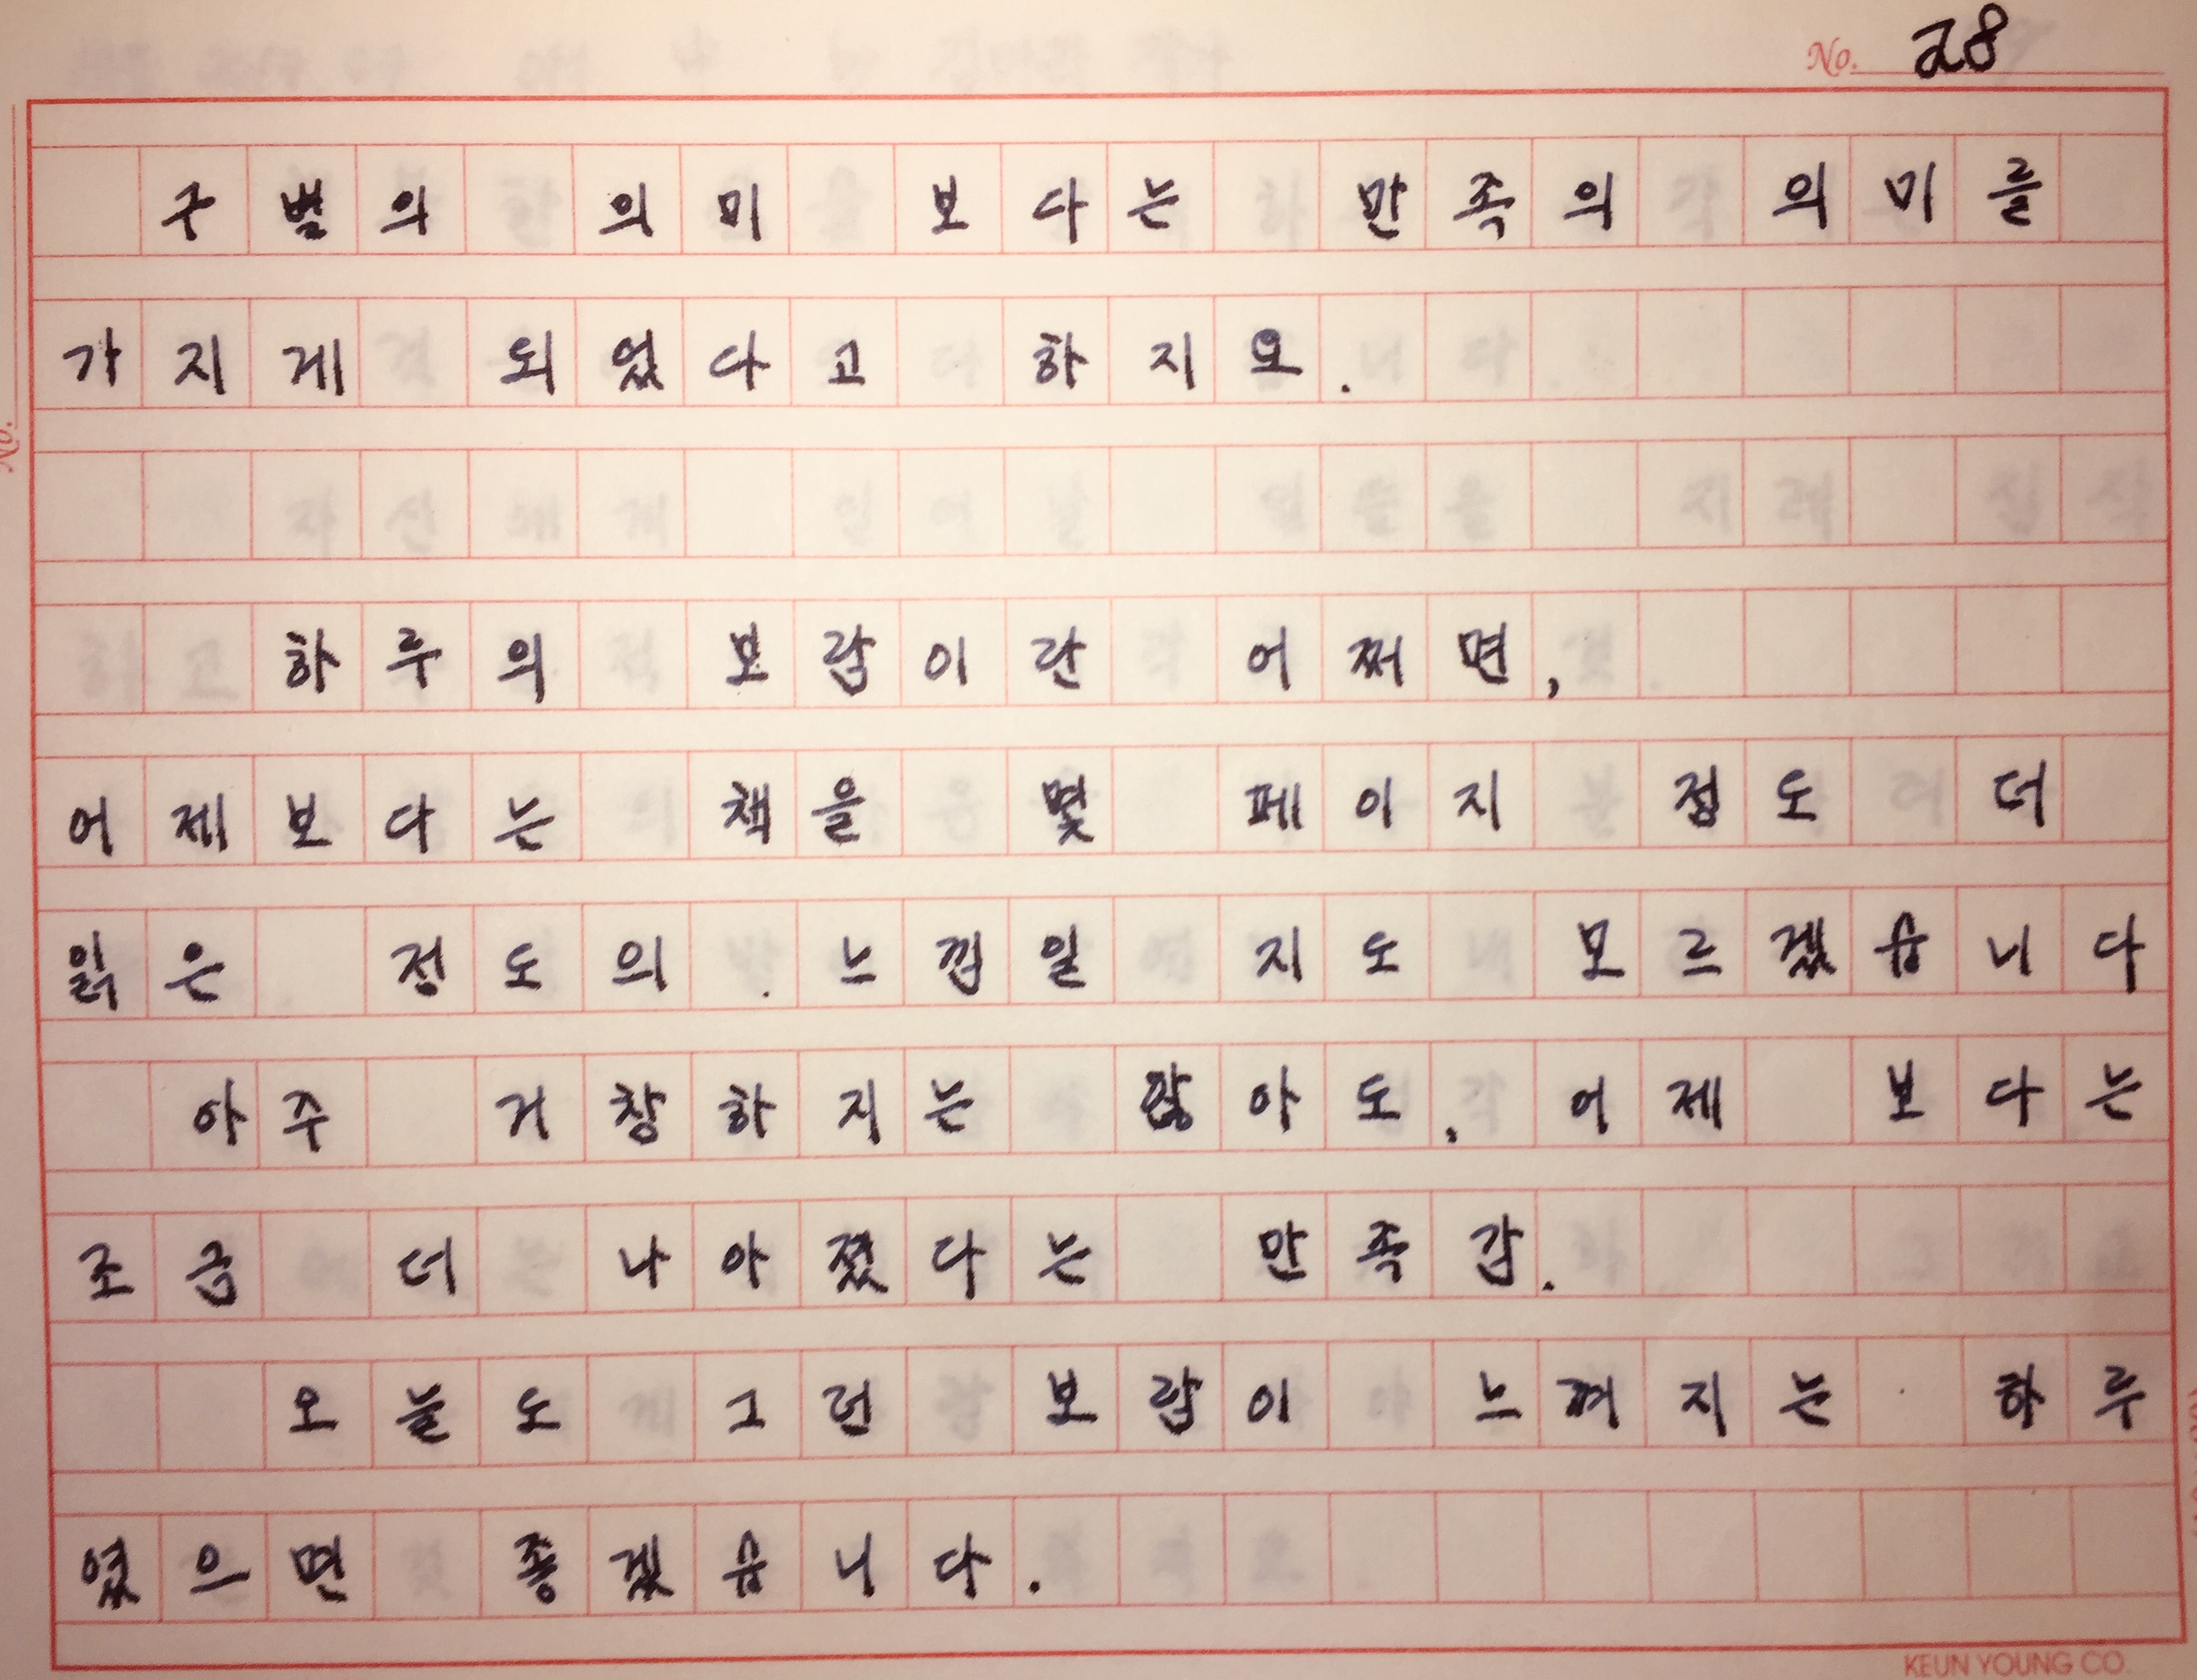 No. 28
구별의 의미 보다는 만족의 의미를
가지게 되었다고 하지요.
하루의 보람이란 어쩌면,
어제보다는 책을 몇 페이지 정도 더
읽은 정도의 느낌일 지도 모르겠습니다
아주 거창하지는 않아도, 어제 보다는
조금 더 나아졌다는 만족감.
오늘도 그런 보람이 느껴지는 하루
였으면 좋겠습니다.
KEUN YOUNG CO.
No.